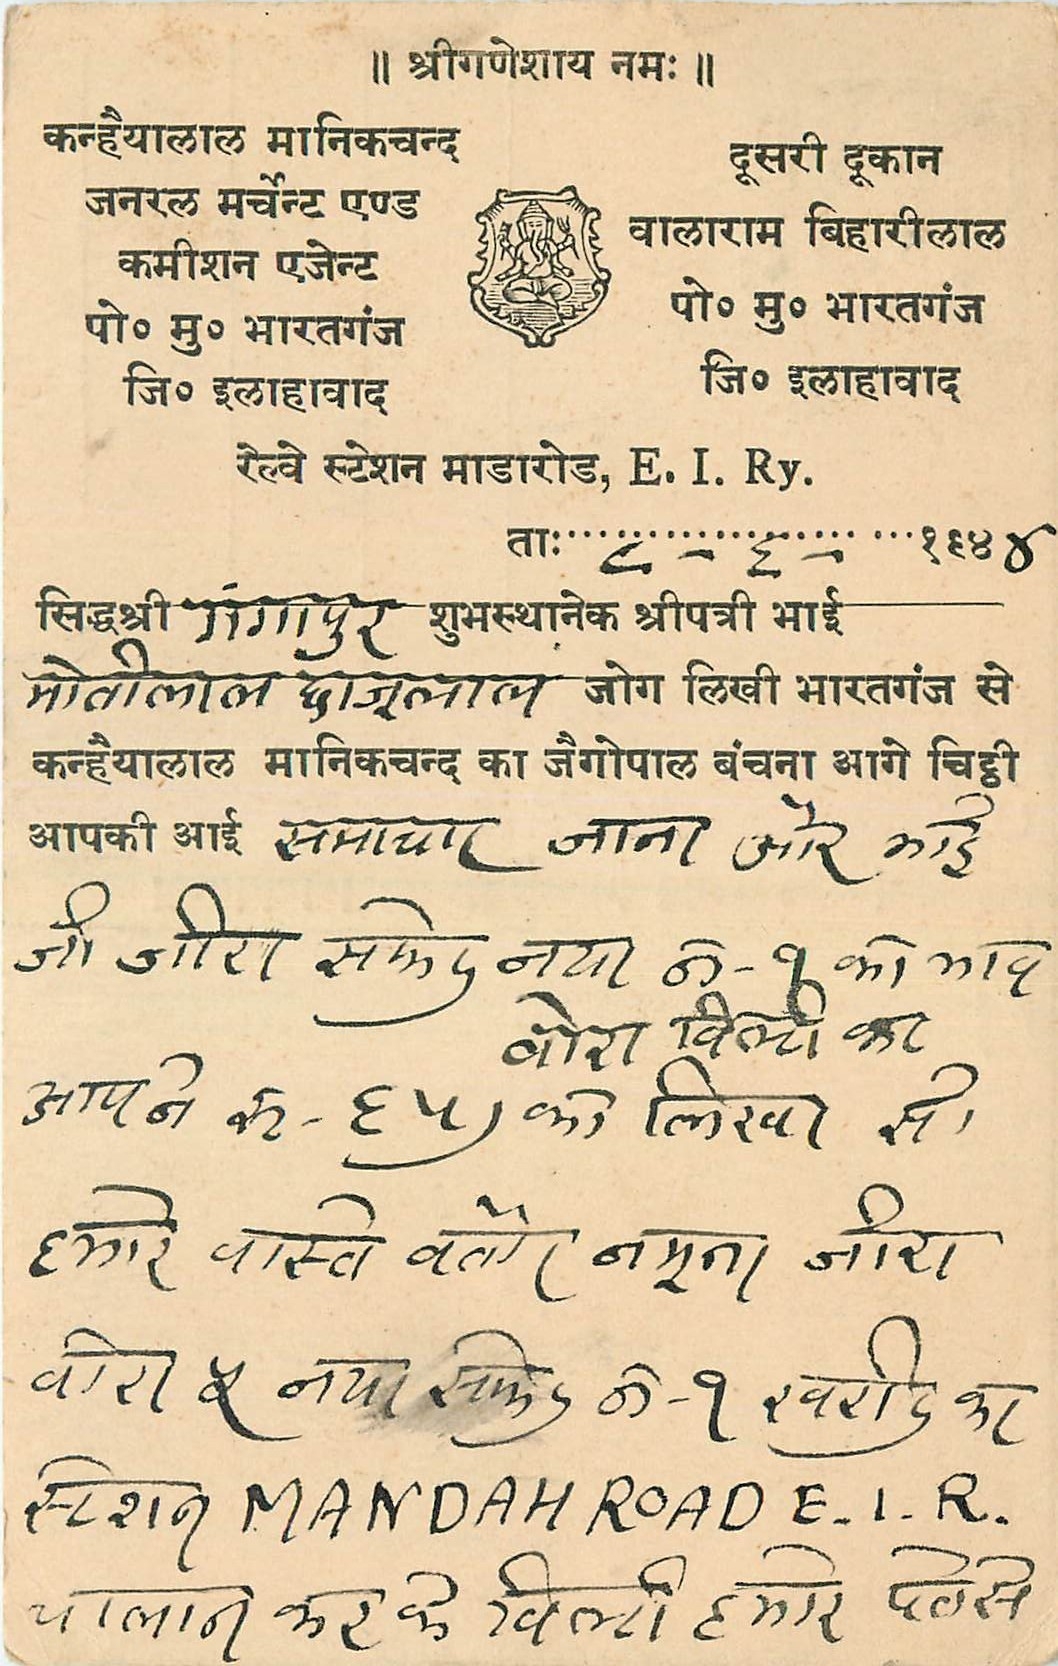 ॥ श्रीगणेशाय नमः ॥
कन्हैयालाल मानिकचन्द
जनरल मर्चेन्ट एण्ड
कमीशन एजेन्ट
पो० मु० भारतगंज
जि० इलाहावाद
दूसरी दूकान
वालाराम बिहारीलाल
पो० मु० भारतगंज
जि० इलाहावाद
रेल्वे स्टेशन माडारोड, E. I. Ry.
ताः ८ - ६ - १९४४
सिद्धश्री गंगापुर शुभस्थानेक श्रीपत्री भाई
मोतीलाल छाजूलाल जोग लिखी भारतगंज से
कन्हैयालाल मानिकचन्द का जैगोपाल बंचना आगे चिट्ठी
आपकी आई समाचार जाना और भाई
जी जीरा सफेद नया नं-१ को भाव
वोरा विल्टी का
आपने रु- ६५) को लिखा सो
हमारे वास्ते बतौर नमूना जीरा
वोरा ५ नया सफेद नं-१ खरीद का
स्टेशन MANDAH ROAD E. I. R.
चालान करके विल्टी हमारे